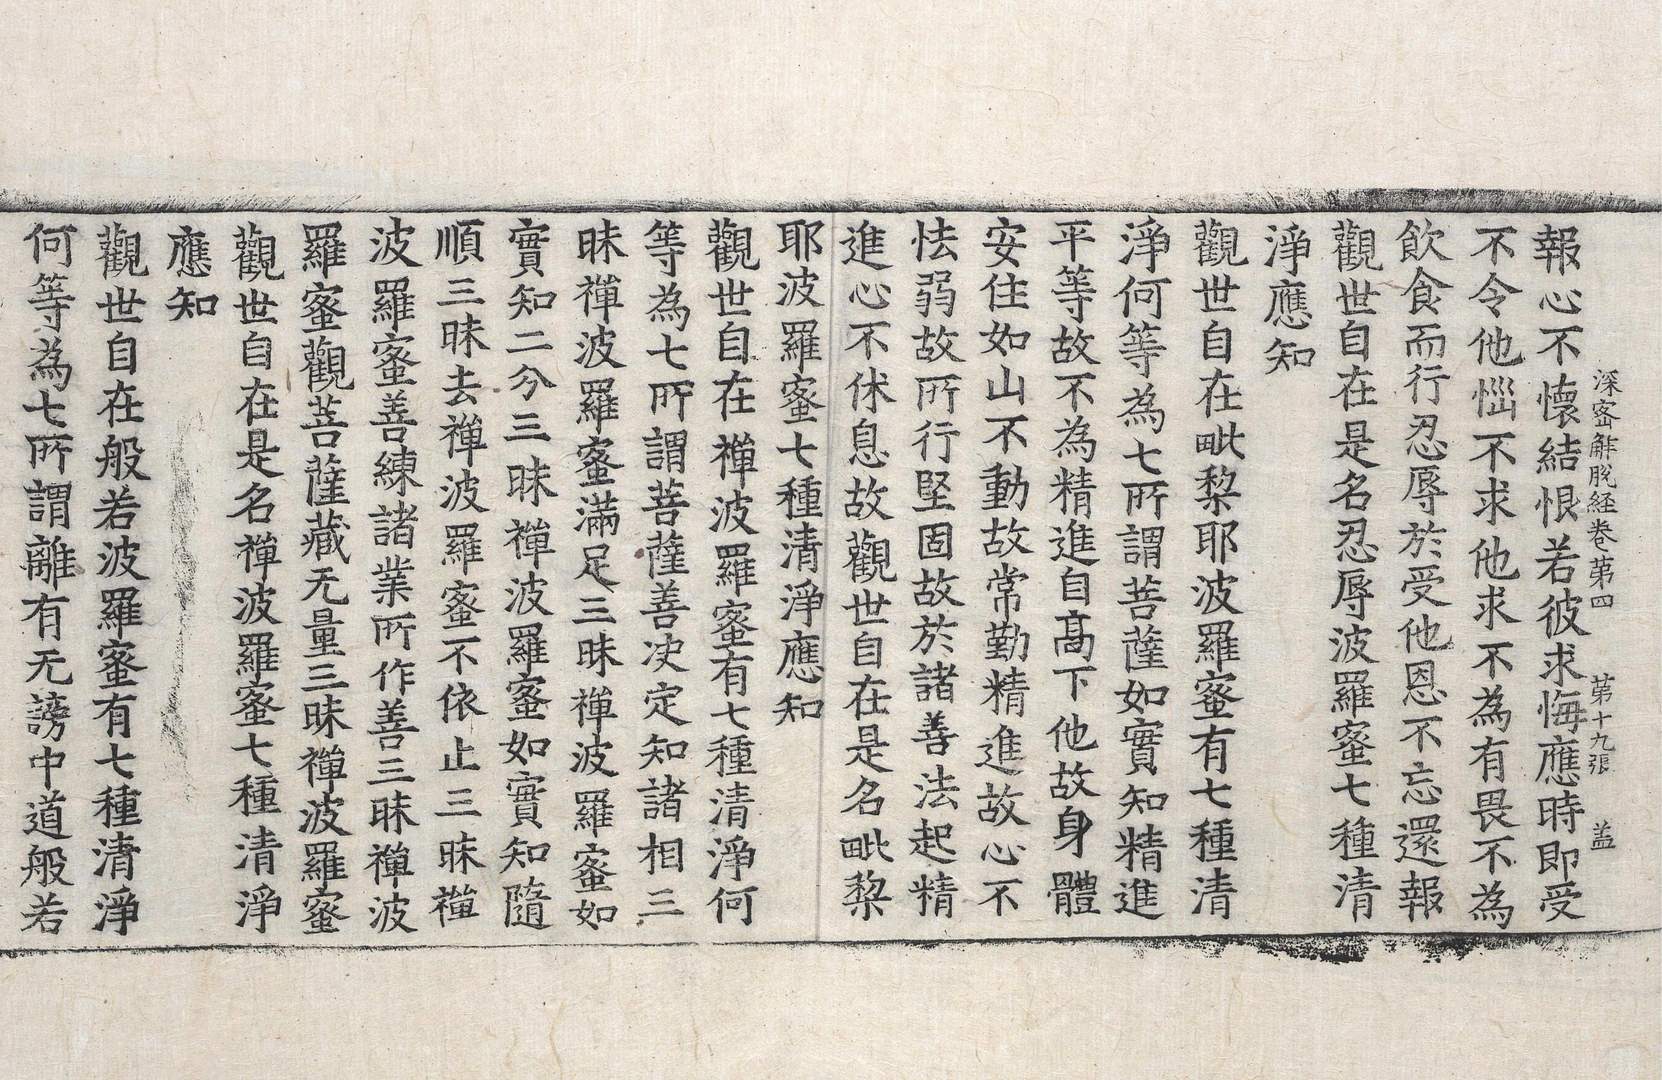 深密解脫経卷第四　第十九張　盖
報心不懷結恨若彼求悔應時即受
不令他惱不求他求不為有畏不為
飲食而行忍辱於受他恩不忘還報
觀世自在是名忍辱波羅蜜七種清
淨應知
觀世自在毗棃耶波羅蜜有七種清
淨何等為七所謂菩薩如實知精進
平等故不為精進自髙下他故身體
安住如山不動故常勤精進故心不
怯弱故所行堅固故於諸善法起精
進心不休息故觀世自在是名毗棃
耶波羅蜜七種清淨應知
觀世自在禪波羅蜜有七種清淨何
等為七所謂菩薩善决定知諸相三
昧禪波羅蜜滿足三昧禪波羅蜜如
實知二分三昧禪波羅蜜如實知隨
順三昧去禪波羅蜜不依止三昧禪
波羅蜜善練諸業所作善三昧禪波
羅蜜觀菩薩藏无量三昧禪波羅蜜
觀世自在是名禪波羅蜜七種清淨
應知
觀世自在般若波羅蜜有七種清淨
何等為七所謂離有无謗中道般若